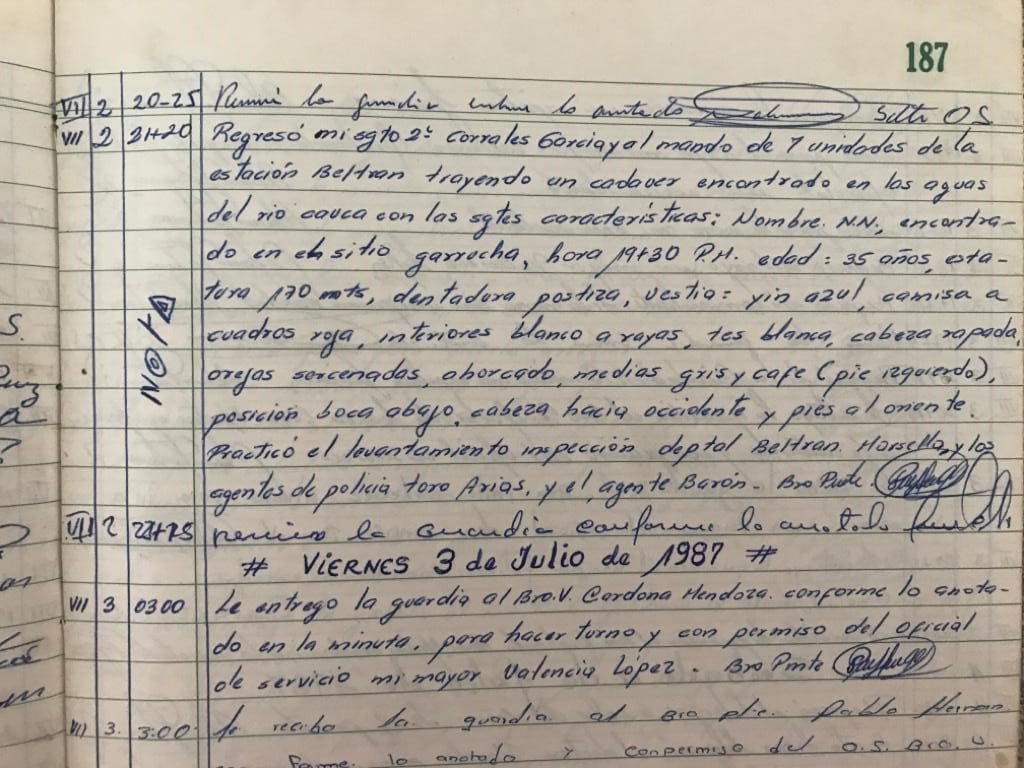 187
VII 2 20-25 la guardia lo anotado OS
VII 2 21+20 Regresó mi sgto 2º Corrales Garcia y al mando de 7 unidades de la
estación Beltran trayendo un cadaver encontrado en las aguas
del rio cauca con las sgtes características: Nombre. N.N., encontra-
do en el sitio garrucha, hora 19+30 P.M. edad: 35 años, esta-
tura 170 mts, dentadura postiza, vestia: yin azul, camisa a
cuadros roja, interiores blanco a rayas, tes blanca, cabeza rapada,
orejas sercenadas, ahorcado, medias gris y cafe (pie izquierdo),
posición boca abajo, cabeza hacia occidente y pies al oriente.
Practicó el levantamiento inspección deptal Beltran. Marsella, y los
agentes de policia toro Arias, y el agente Barón. Bro Pmte.
NOTA
VII 2 la guardia conforme lo anotado
# VIERNES 3 de Julio de 1987 #
VII 3 0300 Le entrego la guardia al Bro.V. Cardona Mendoza. conforme lo anota-
do en la minuta, para hacer turno y con permiso del oficial
de servicio mi mayor Valencia López. Bro Pmte
VII 3. 3:00 le recibo la guardia al Bro pte. Pablo Hernan.
lo anotado y con permiso del O.S. Bro. V.